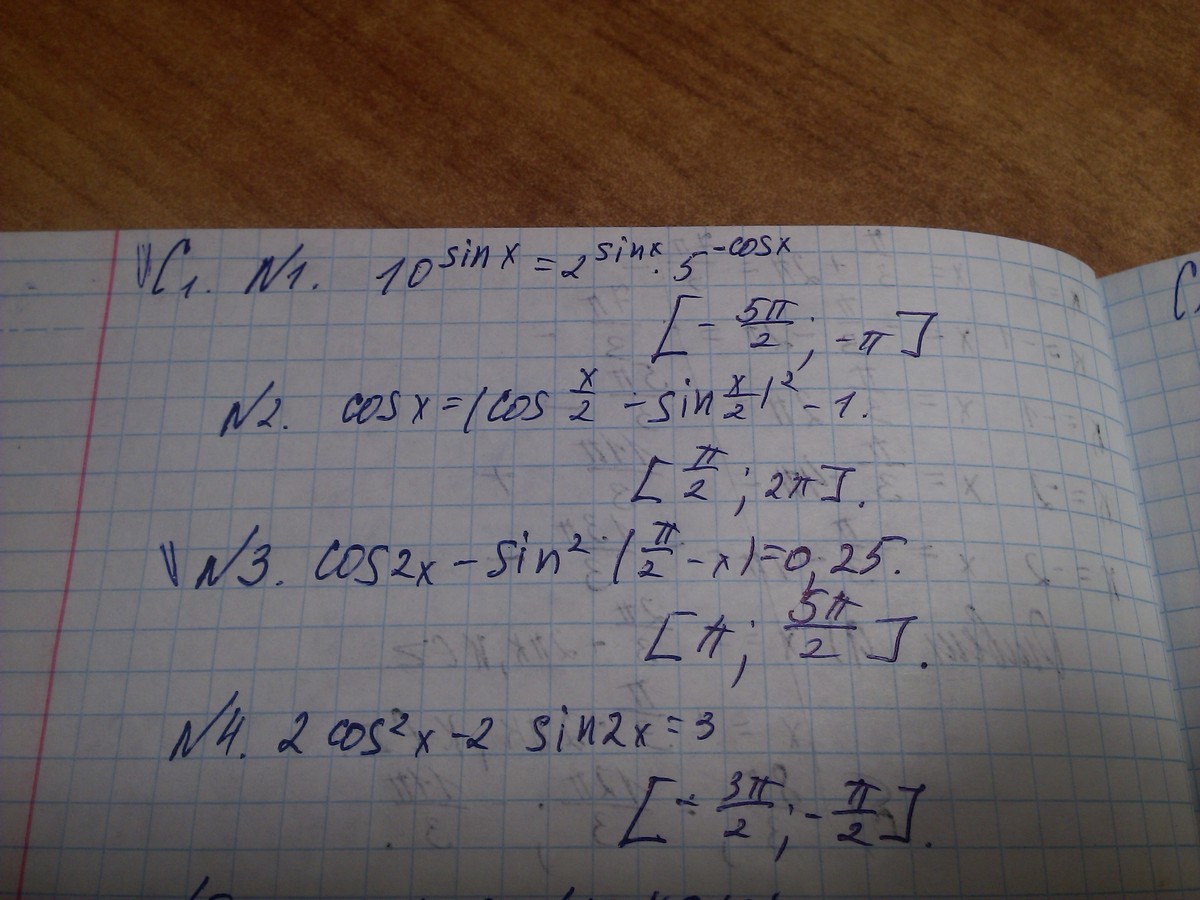 C1. N1. 10^sin x = 2^sin x · 5^-cos x
[- 5π/2 ; -π]
N2. cos x = (cos x/2 - sin x/2)² - 1.
[π/2 ; 2π].
N3. cos2x - sin² (π/2 - x) = 0,25.
[π ; 5π/2].
N4. 2 cos²x - 2 sin2x = 3
[- 3π/2 ; - π/2].